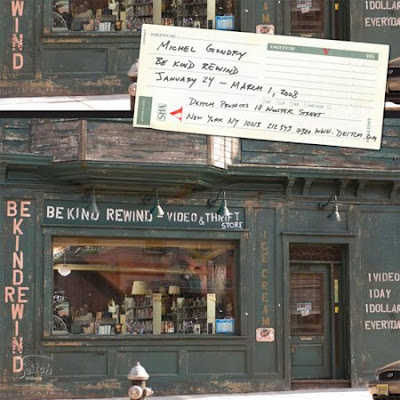 REWIND
DEITCH
DEITCH
VHS
Michel Gondry
Be Kind Rewind
January 24 – March 1, 2008
Deitch Projects 18 Wooster Street
New York NY 10013 212 343 7300 www.deitch.com
VHS
1 DOLLAR
EVERYDAY
BE KIND REWIND – VIDEO & THRIFT
STORE
BE
KIND
REWIND
ICE CREAM
1 VIDEO
1 DAY
1 DOLLAR
EVERYDAY